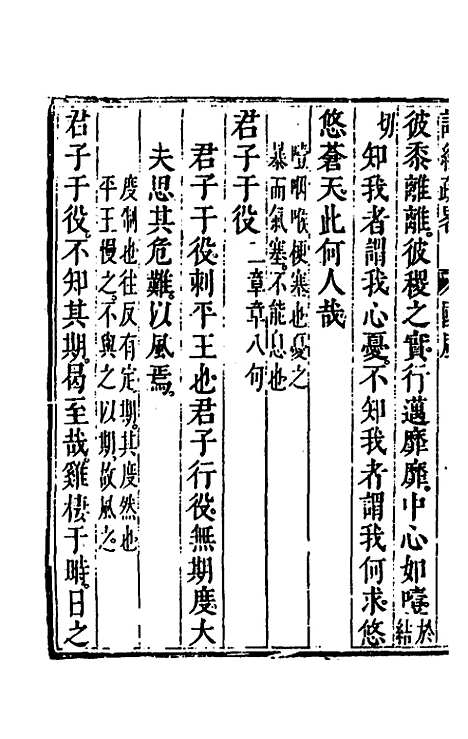 彼黍離離彼稷之實行邁靡靡中心如噎於結
切知我者謂我心憂不知我者謂我何求悠
悠蒼天此何人哉
噎咽喉梗塞也憂之
暴而氣塞不能息也
君子于役二章章八句
君子于役刺平王也君子行役無期度大
夫思其危難以風焉
度制也往反有定期其度然也
平王慢之不與之以期故風之
君子于役不知其期曷至哉雞棲于塒日之